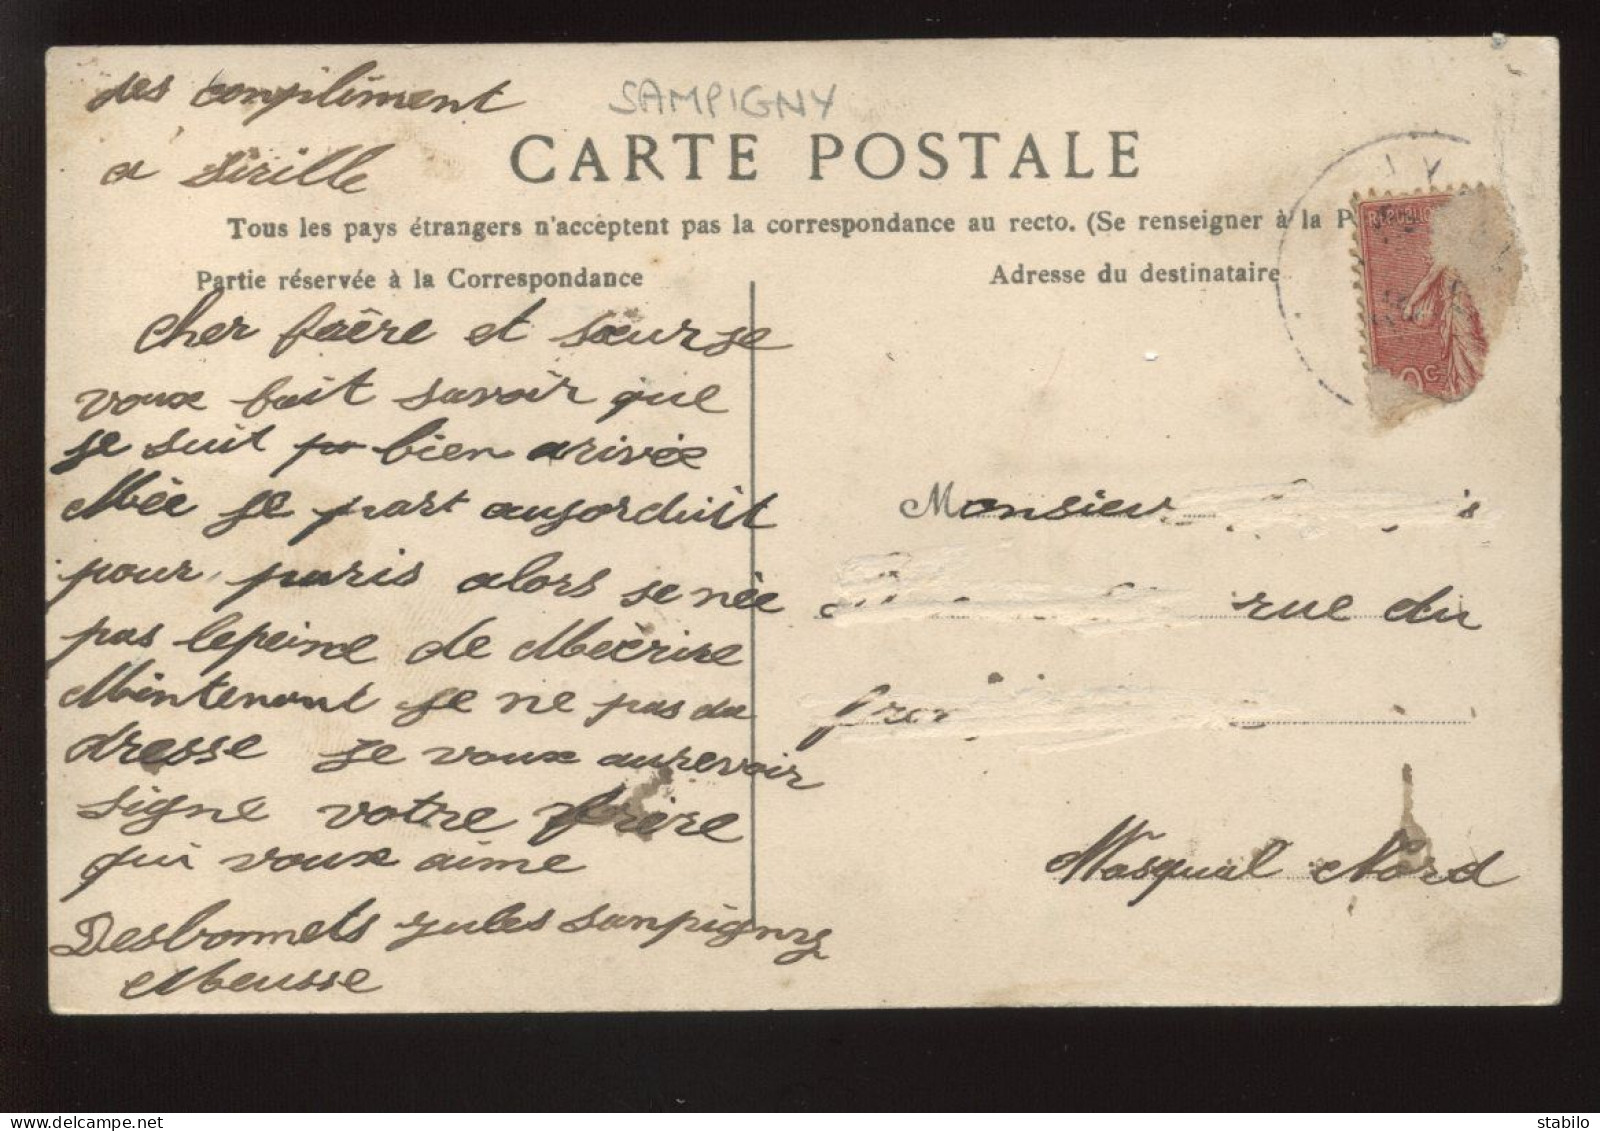 des compliment
a Sirille
SAMPIGNY
CARTE POSTALE
Tous les pays étrangers n'acceptent pas la correspondance au recto. (Se renseigner à la P
Partie réservée à la Correspondance
Adresse du destinataire
Cher frère et sœur je
voux fait savoir que
je suit bien arivée
Mée je part aujorduit
pour paris alors se née
pas lepeine de Mécrire
Mintenant je ne pas da
dresse je voux aurevoir
signe votre frère
qui voux aime
Desbonnets jules Sanpigny
Meusse
REPUBLIQ
0c
Monsieur s
rue du
Wasqual Nord
stabilo
delcampe.net